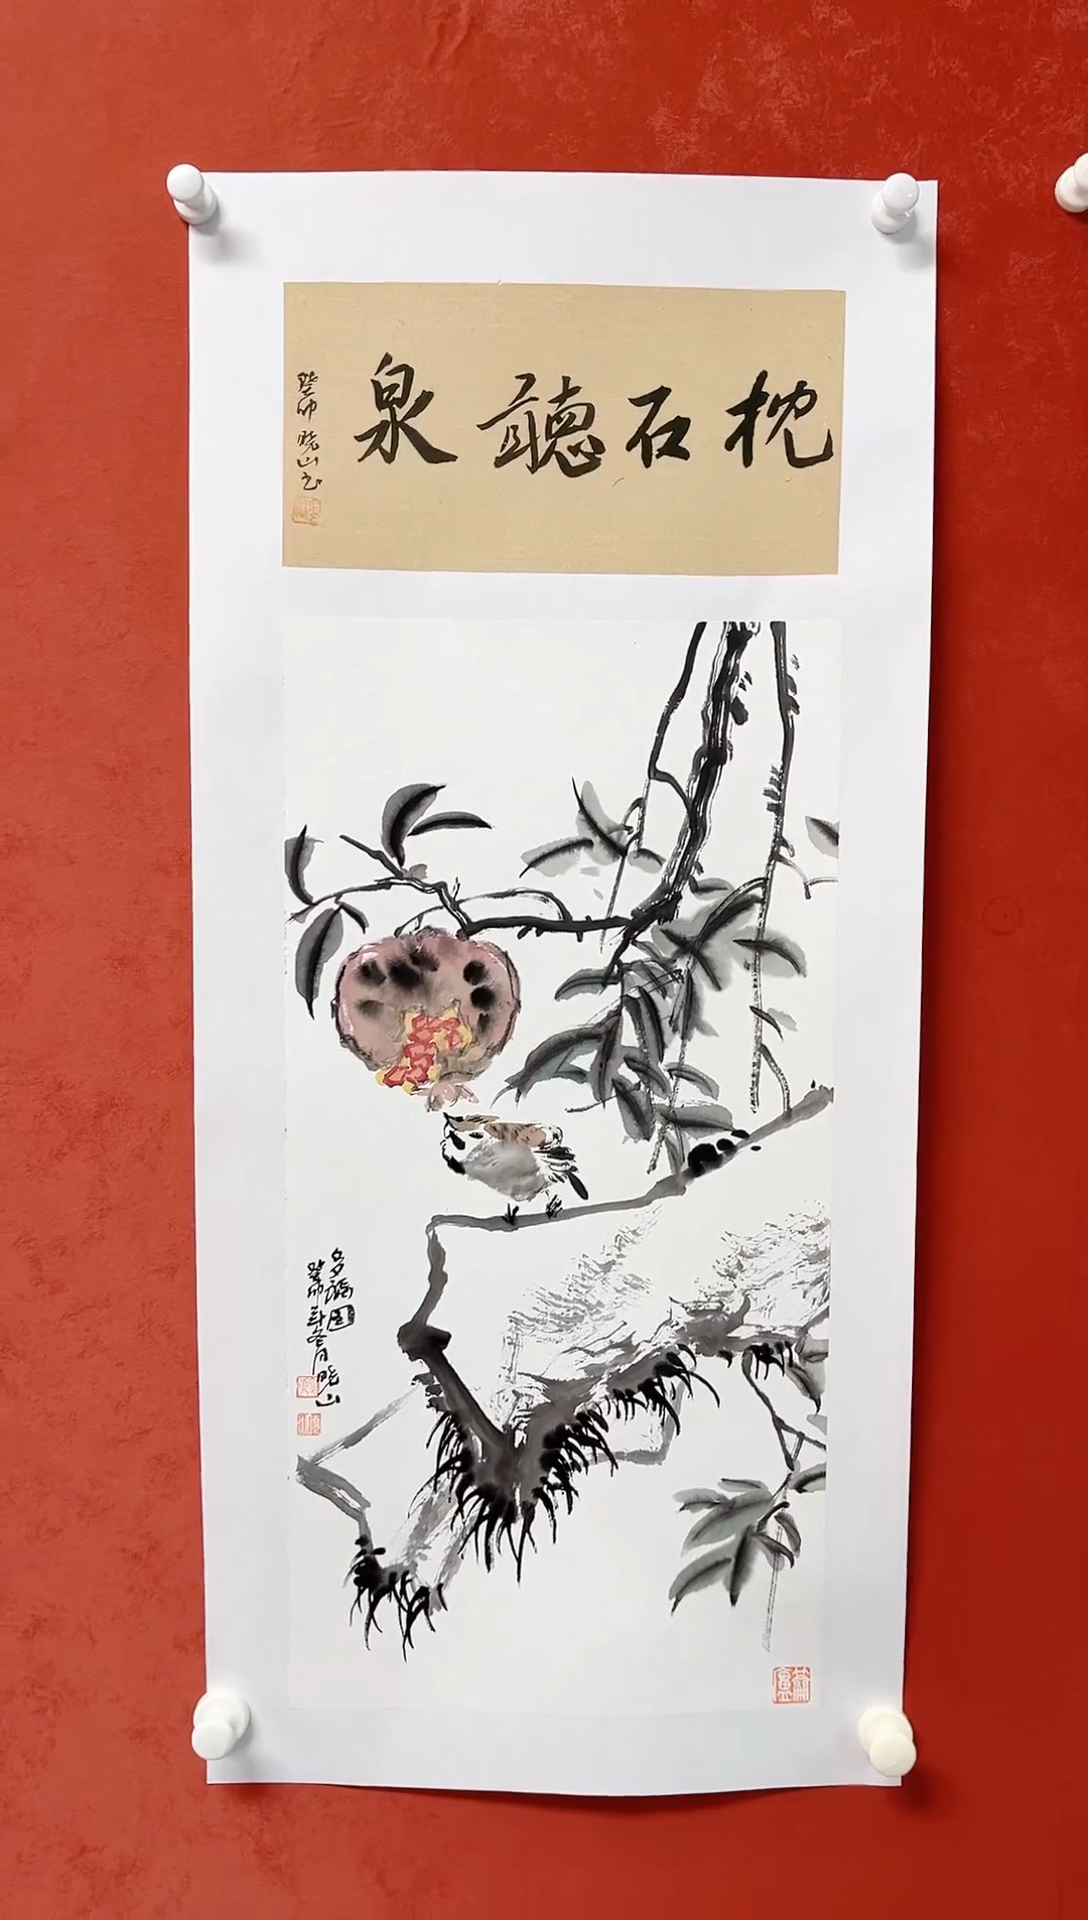 枕石聽泉
癸卯 晓山书
多福图
癸卯年冬月晓山